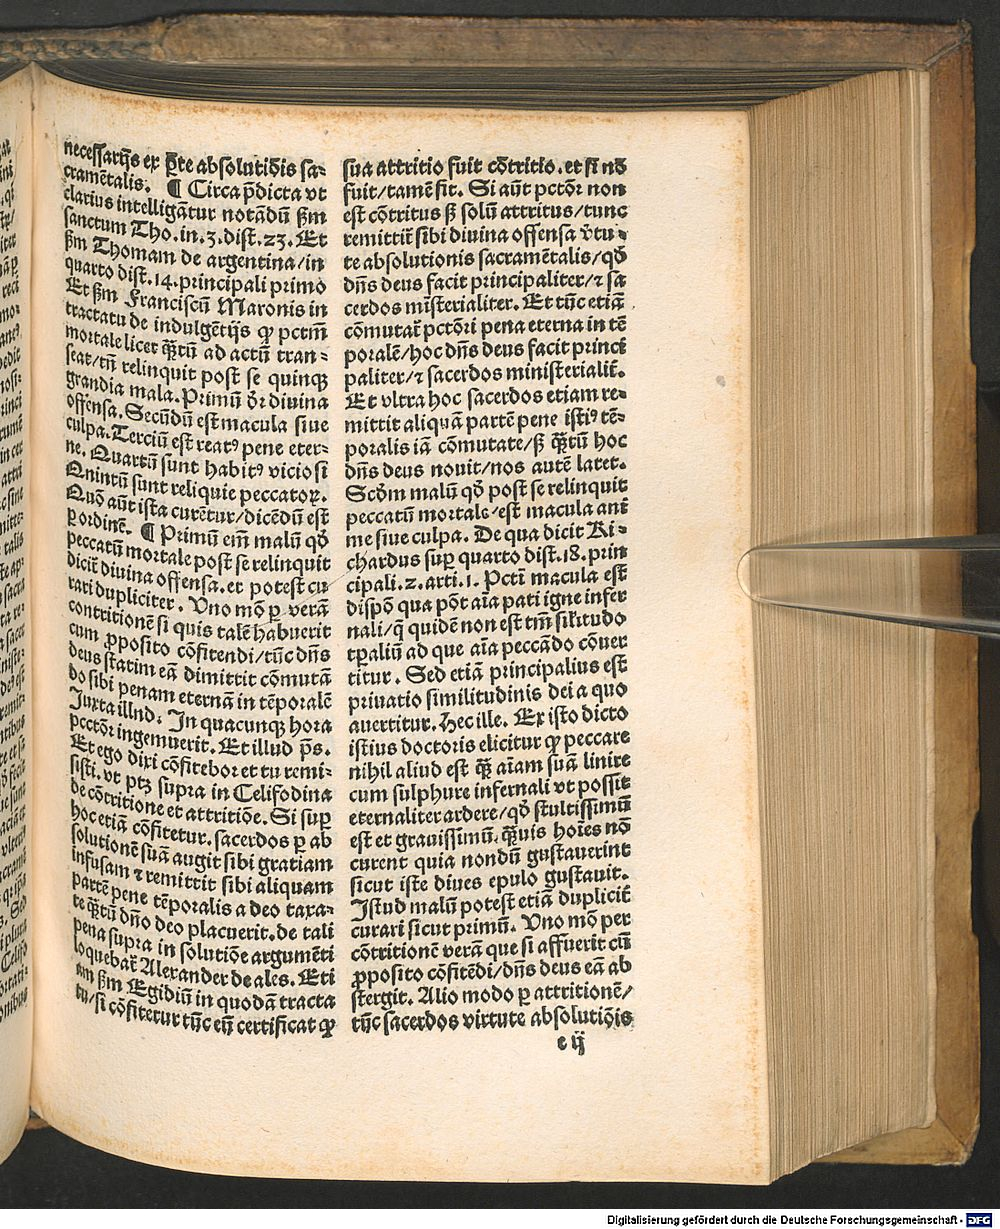 necessarijs ex p̄te absolutiōis sa-
cramētalis. ¶ Circa p̄dicta vt
clarius intelligātur notādū ẜm
sanctum Tho. in. 3. dist. 23. Et
ẜm Thomam de argentina/in
quarto dist. 14. principali primo
Et ẜm Franciscū Maronis in
tractatu de indulgētijs ꝙ pctm̄
mortale licet q̄ȝtū ad actū tran-
seat/tn̄ relinquit post se quinqꝫ
grandia mala. Primū dr̄ diuina
offensa. Secūdū est macula siue
culpa. Terciū est reatꝰ pene eter-
ne. Quartū sunt habitꝰ viciosi
Quintū sunt reliquie peccatoꝝ.
Quō aūt ista curētur/dicēdū est
ꝑ ordinē. ¶ Primū em̄ malū qd̄
peccatū mortale post se relinquit
dicit̄ diuina offensa. et potest cu
rari dupliciter. Uno mō ꝑ verā
contritionē si quis talē habuerit
cum ꝓposito cōfitendi/tūc dn̄s
deus statim eā dimittit cōmutā
do sibi penam eternā in tēporalē
Juxta illud. In quacunqꝫ hora
pcctōr ingemuerit. Et illud p̄s.
Et ego dixi cōfitebor et tu remi-
sisti. vt ptꝫ supra in Celifodina
de cōtritione et attritiōe. Si suꝑ
hoc etiā cōfitetur. sacerdos ꝑ ab
solutionē suā augit sibi gratiam
infusam ⁊ remittit sibi aliquam
partē pene tēporalis a deo taxa-
te q̄ȝtū dn̄o deo placuerit. de tali
pena supra in solutiōe argumēti
loquebat̄ Alexander de ales. Eti
am ẜm Egidiū in quodā tracta
tu/si cōfitetur tūc eū certificat ꝙ
sua attritio fuit cōtritio. et si nō
fuit/tamē fit. Si aūt pctōr non
est cōtritus sꝫ solū attritus/tunc
remittit̄ sibi diuina offensa v̄tu-
te absolutionis sacramētalis/qd̄
dn̄s deus facit principaliter/⁊ sa
cerdos mīsterialiter. Et tūc etiā
cōmutat̄ pctōri pena eterna in tē
poralē/hoc dn̄s deus facit princi
paliter/⁊ sacerdos ministerialit̄.
Et vltra hoc sacerdos etiam re-
mittit aliquā partē pene istiꝰ tē-
poralis iā cōmutate/sꝫ q̄ȝtū hoc
dn̄s deus nouit/nos autē latet.
Scd̄m malū qd̄ post se relinquit
peccatū mortale/est macula ani
me siue culpa. De qua dicit Ri-
chardus suꝑ quarto dist. 18. prin
cipali. 2. arti. 1. Pcti macula est
dispō qua pōt aīa pati igne infer
nali/q̄ quidē non est tm̄ siłitudo
tꝑaliū ad que aīa peccādo cōuer
titur. Sed etiā principalius est
priuatio similitudinis dei a quo
auertitur. Hec ille. Ex isto dicto
istius doctoris elicitur ꝙ peccare
nihil aliud est q̄ȝ aīam suā linire
cum sulphure infernali vt possit
eternaliter ardere/qd̄ stultissimū
est et grauissimū. q̄ȝuis hoīes nō
curent quia nondū gustauerint
sicut iste diues epulo gustauit.
Istud malū potest etiā duplicit̄
curari sicut primū. Uno mō per
cōtritionē verā que si affuerit cū
ꝓposito cōfitēdi/dn̄s deus eā ab
stergit. Alio modo ꝑ attritionē/
tūc sacerdos virtute absolutiōis
e ij
Digitalisierung gefördert durch die Deutsche Forschungsgemeinschaft - DFG